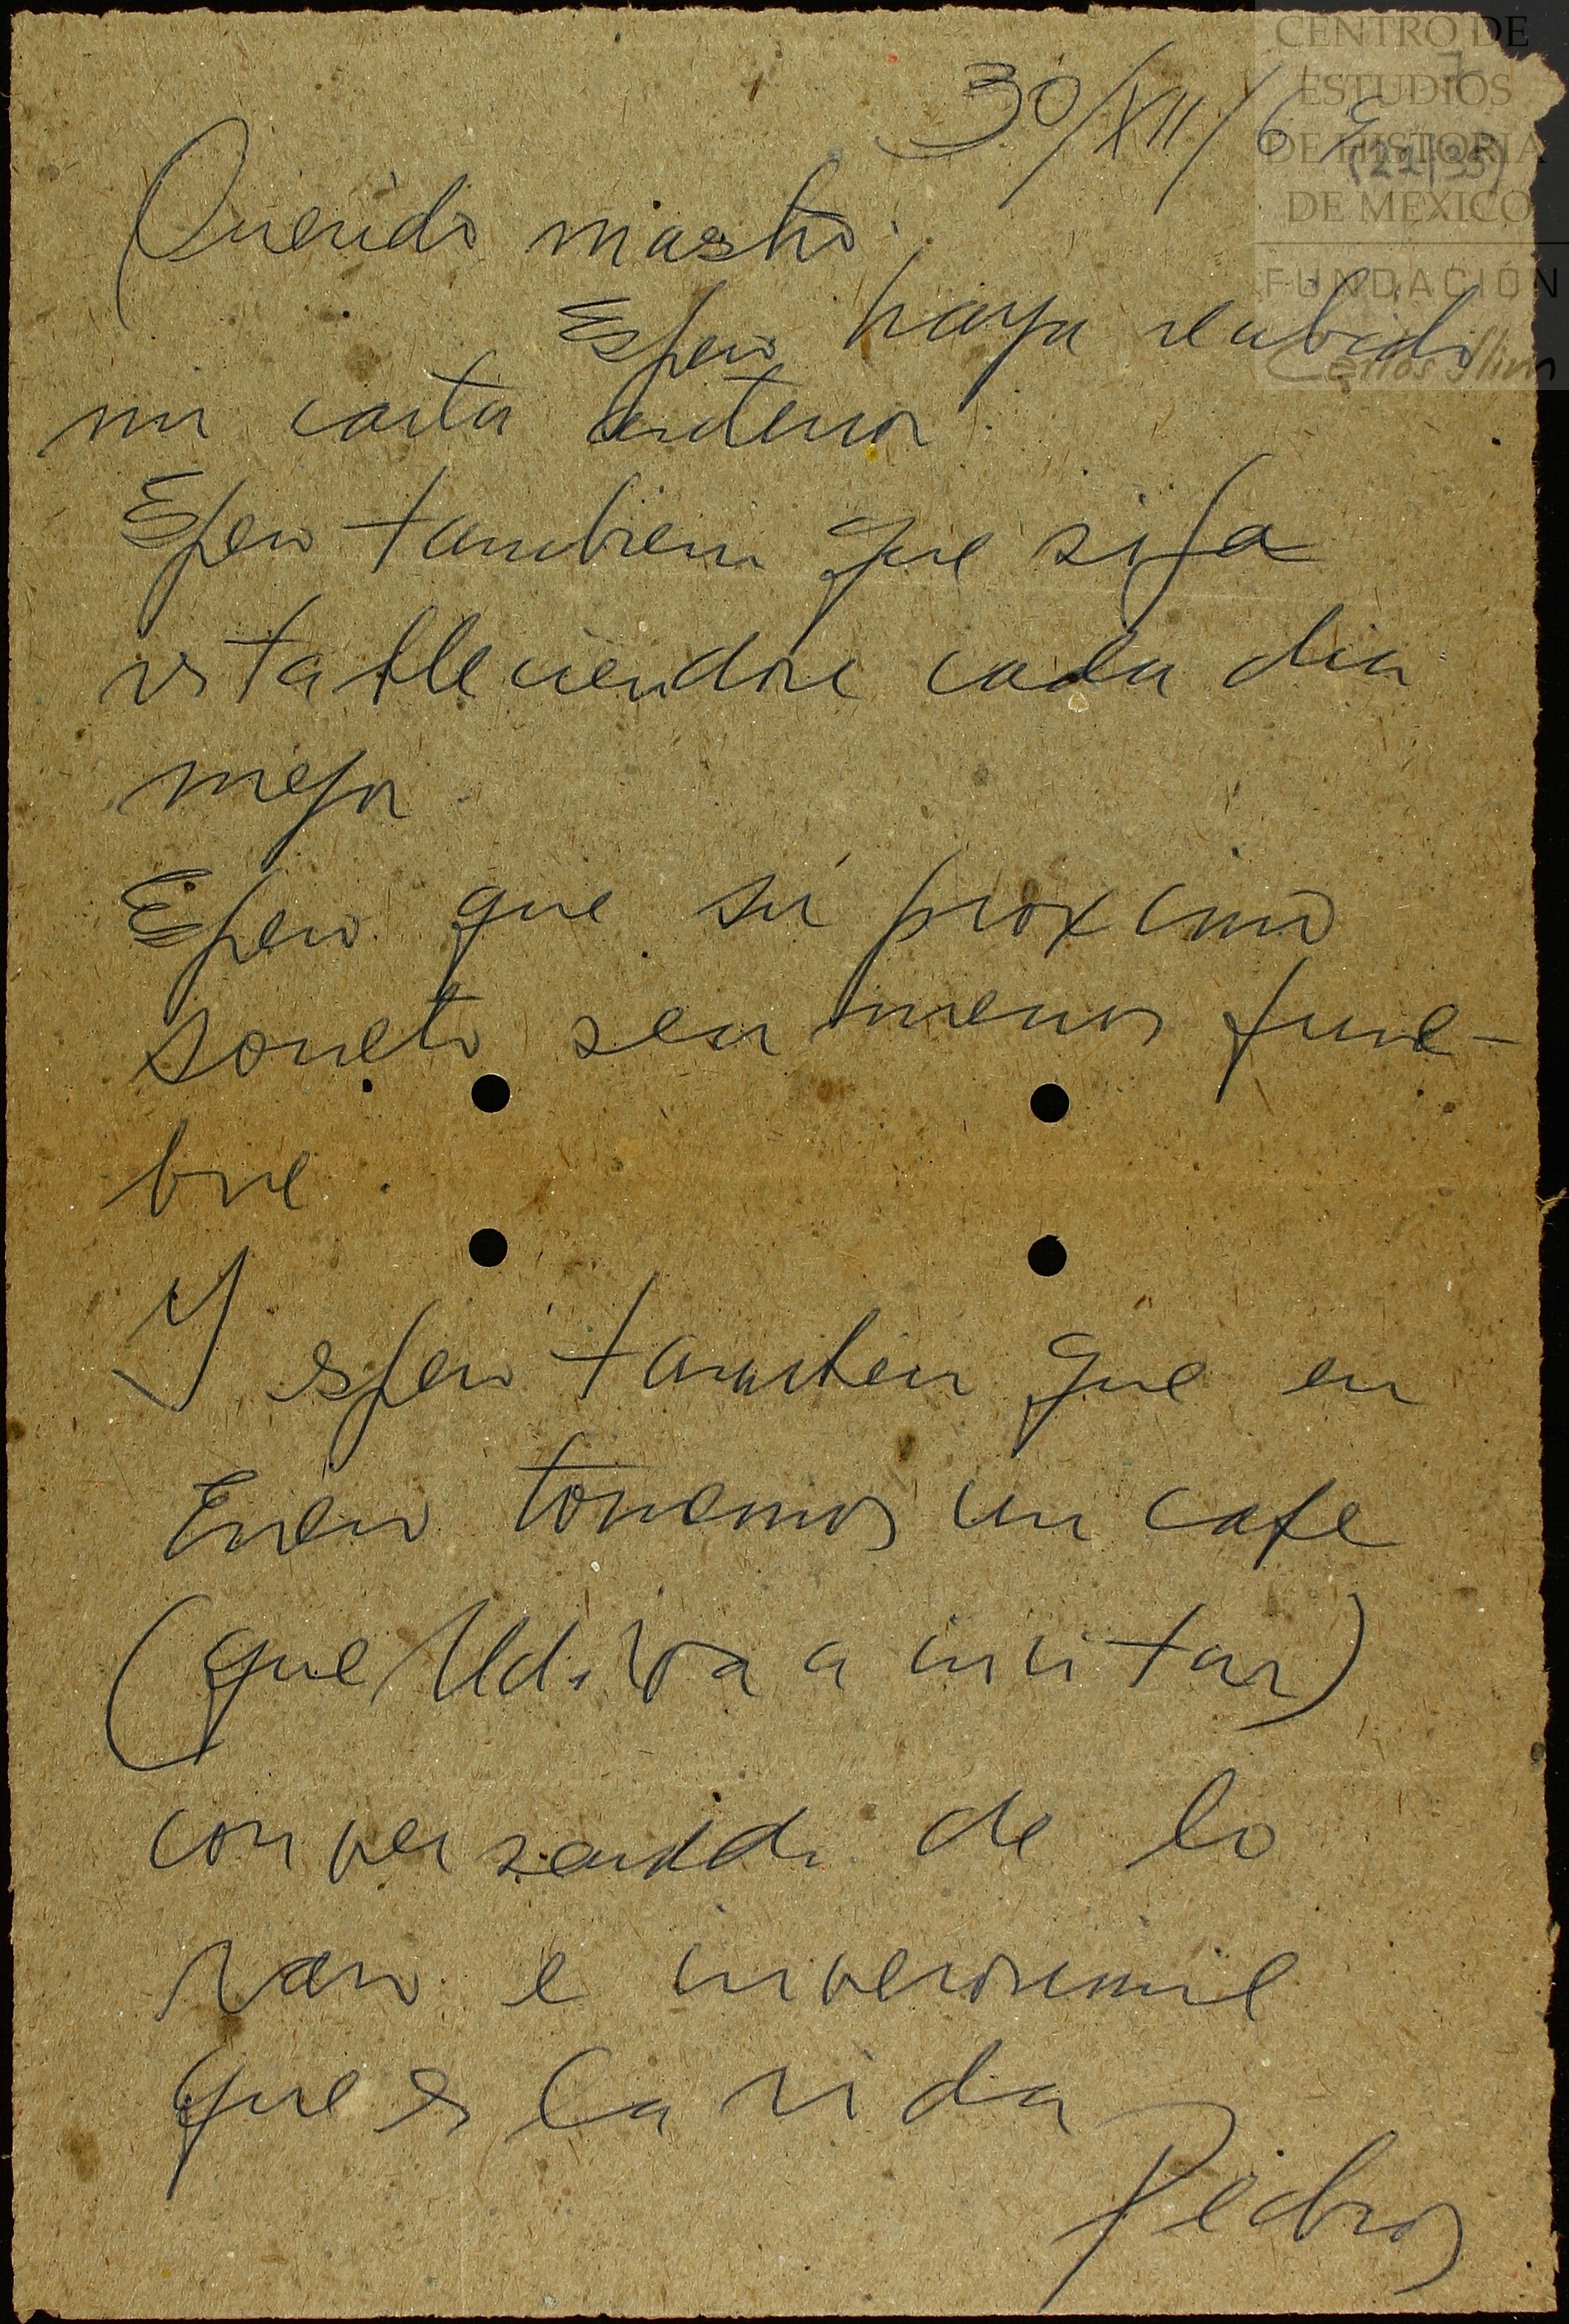 CENTRO DE
ESTUDIOS
DE HISTORIA
DE MEXICO
FUNDACIÓN
Carlos Slim
30/XII/6
(22/35)
Querido maestro:
Espero haya recibido
mi carta anterior.
Espero tambien que siga
restableciendose cada dia
mejor.
Espero que su próximo
soneto sea menos fune-
bre.
Y espero tambien que en
Enero tomemos un cafe
(que Ud. va a invitar)
conversando de lo
raro e inverosimil
que es la vida
Pedro